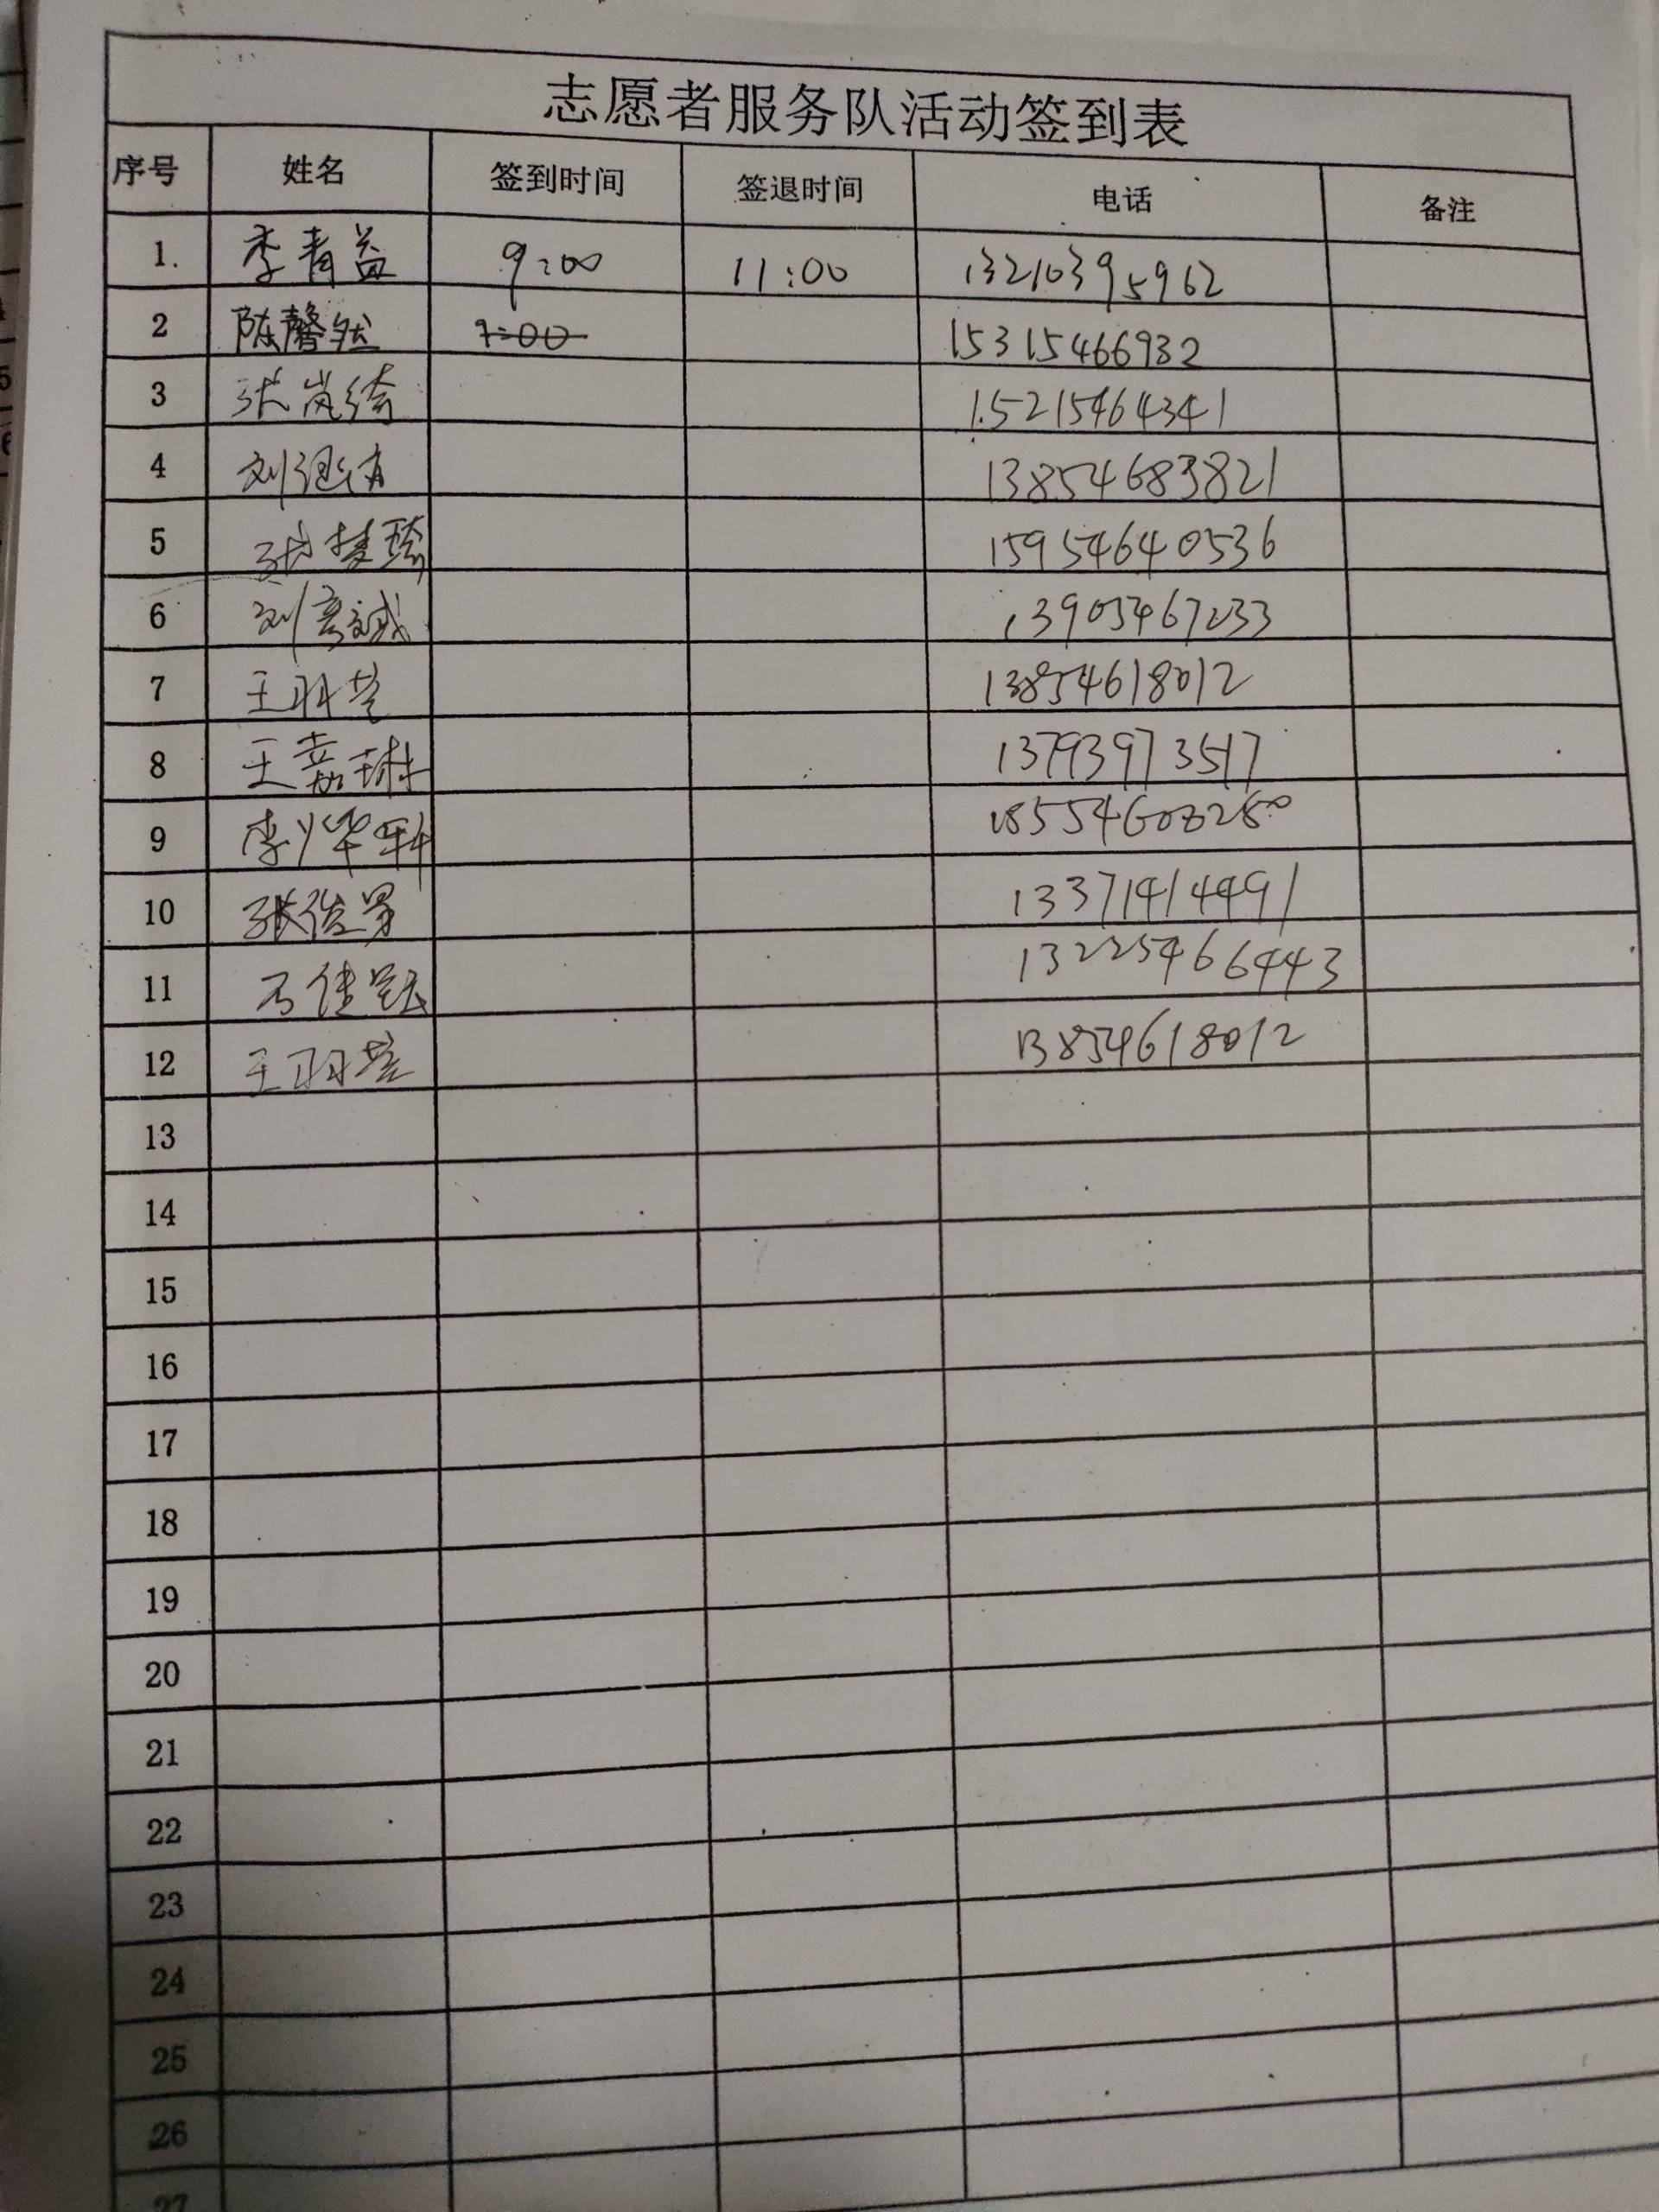 志愿者服务队活动签到表
序号 姓名 签到时间 签退时间 电话 备注
1. 李青益 9:00 11:00 13210395962
2 陈馨然 9:00 15315466932
3 张岚绮 15215464341
4 刘 13854683821
5 张楚琦 15954640536
6 刘彦诚 13905467233
7 王羽萱 13854618012
8 王嘉琳 13793973517
9 李烨 18554608280
10 张俊男 13371414491
11 佳 13225466443
12 王羽萱 13854618012
13
14
15
16
17
18
19
20
21
22
23
24
25
26
27